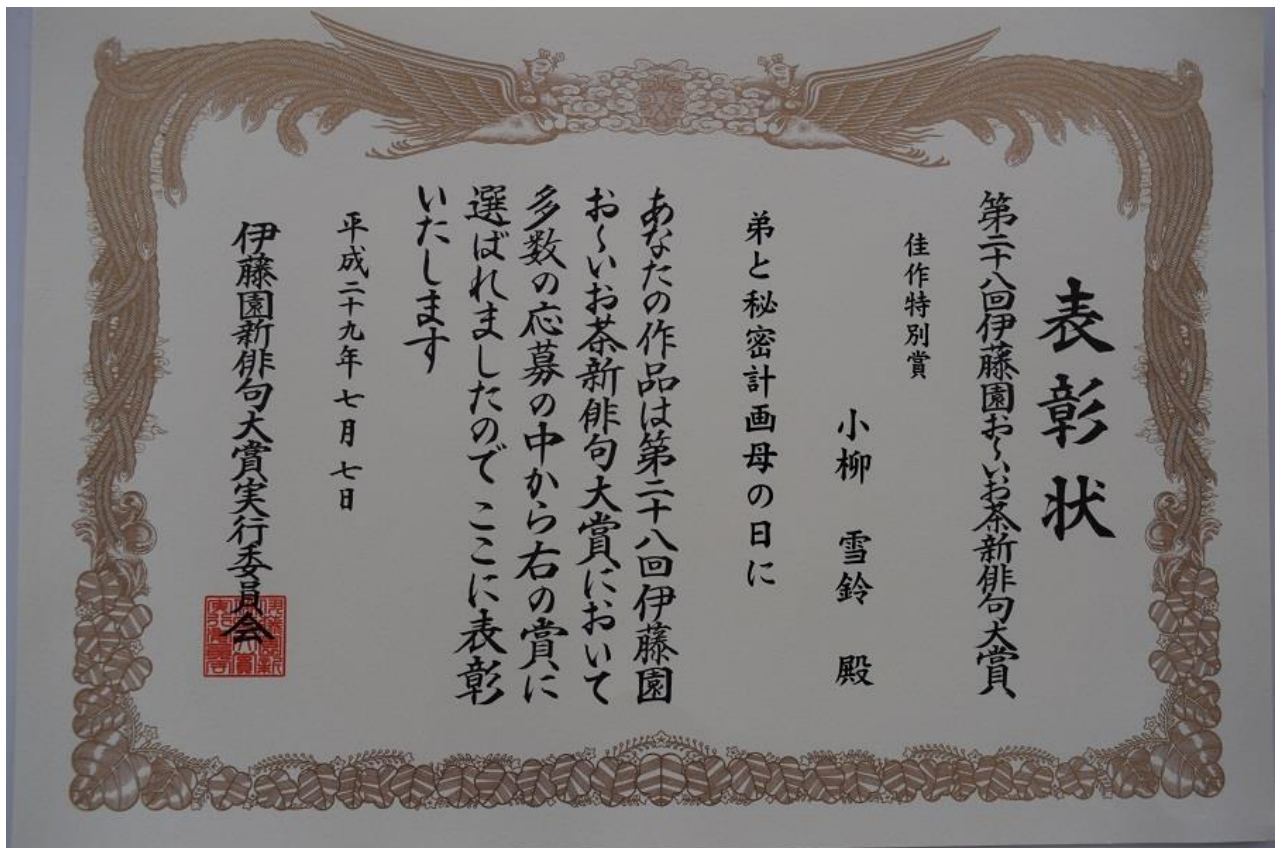 表彰状
第二十八回伊藤園お〜いお茶新俳句大賞
佳作特別賞
小柳 雪鈴 殿
弟と秘密計画母の日に
あなたの作品は第二十八回伊藤園
お〜いお茶新俳句大賞において
多数の応募の中から右の賞に
選ばれましたので ここに表彰
いたします
平成二十九年七月七日
伊藤園新俳句大賞実行委員会